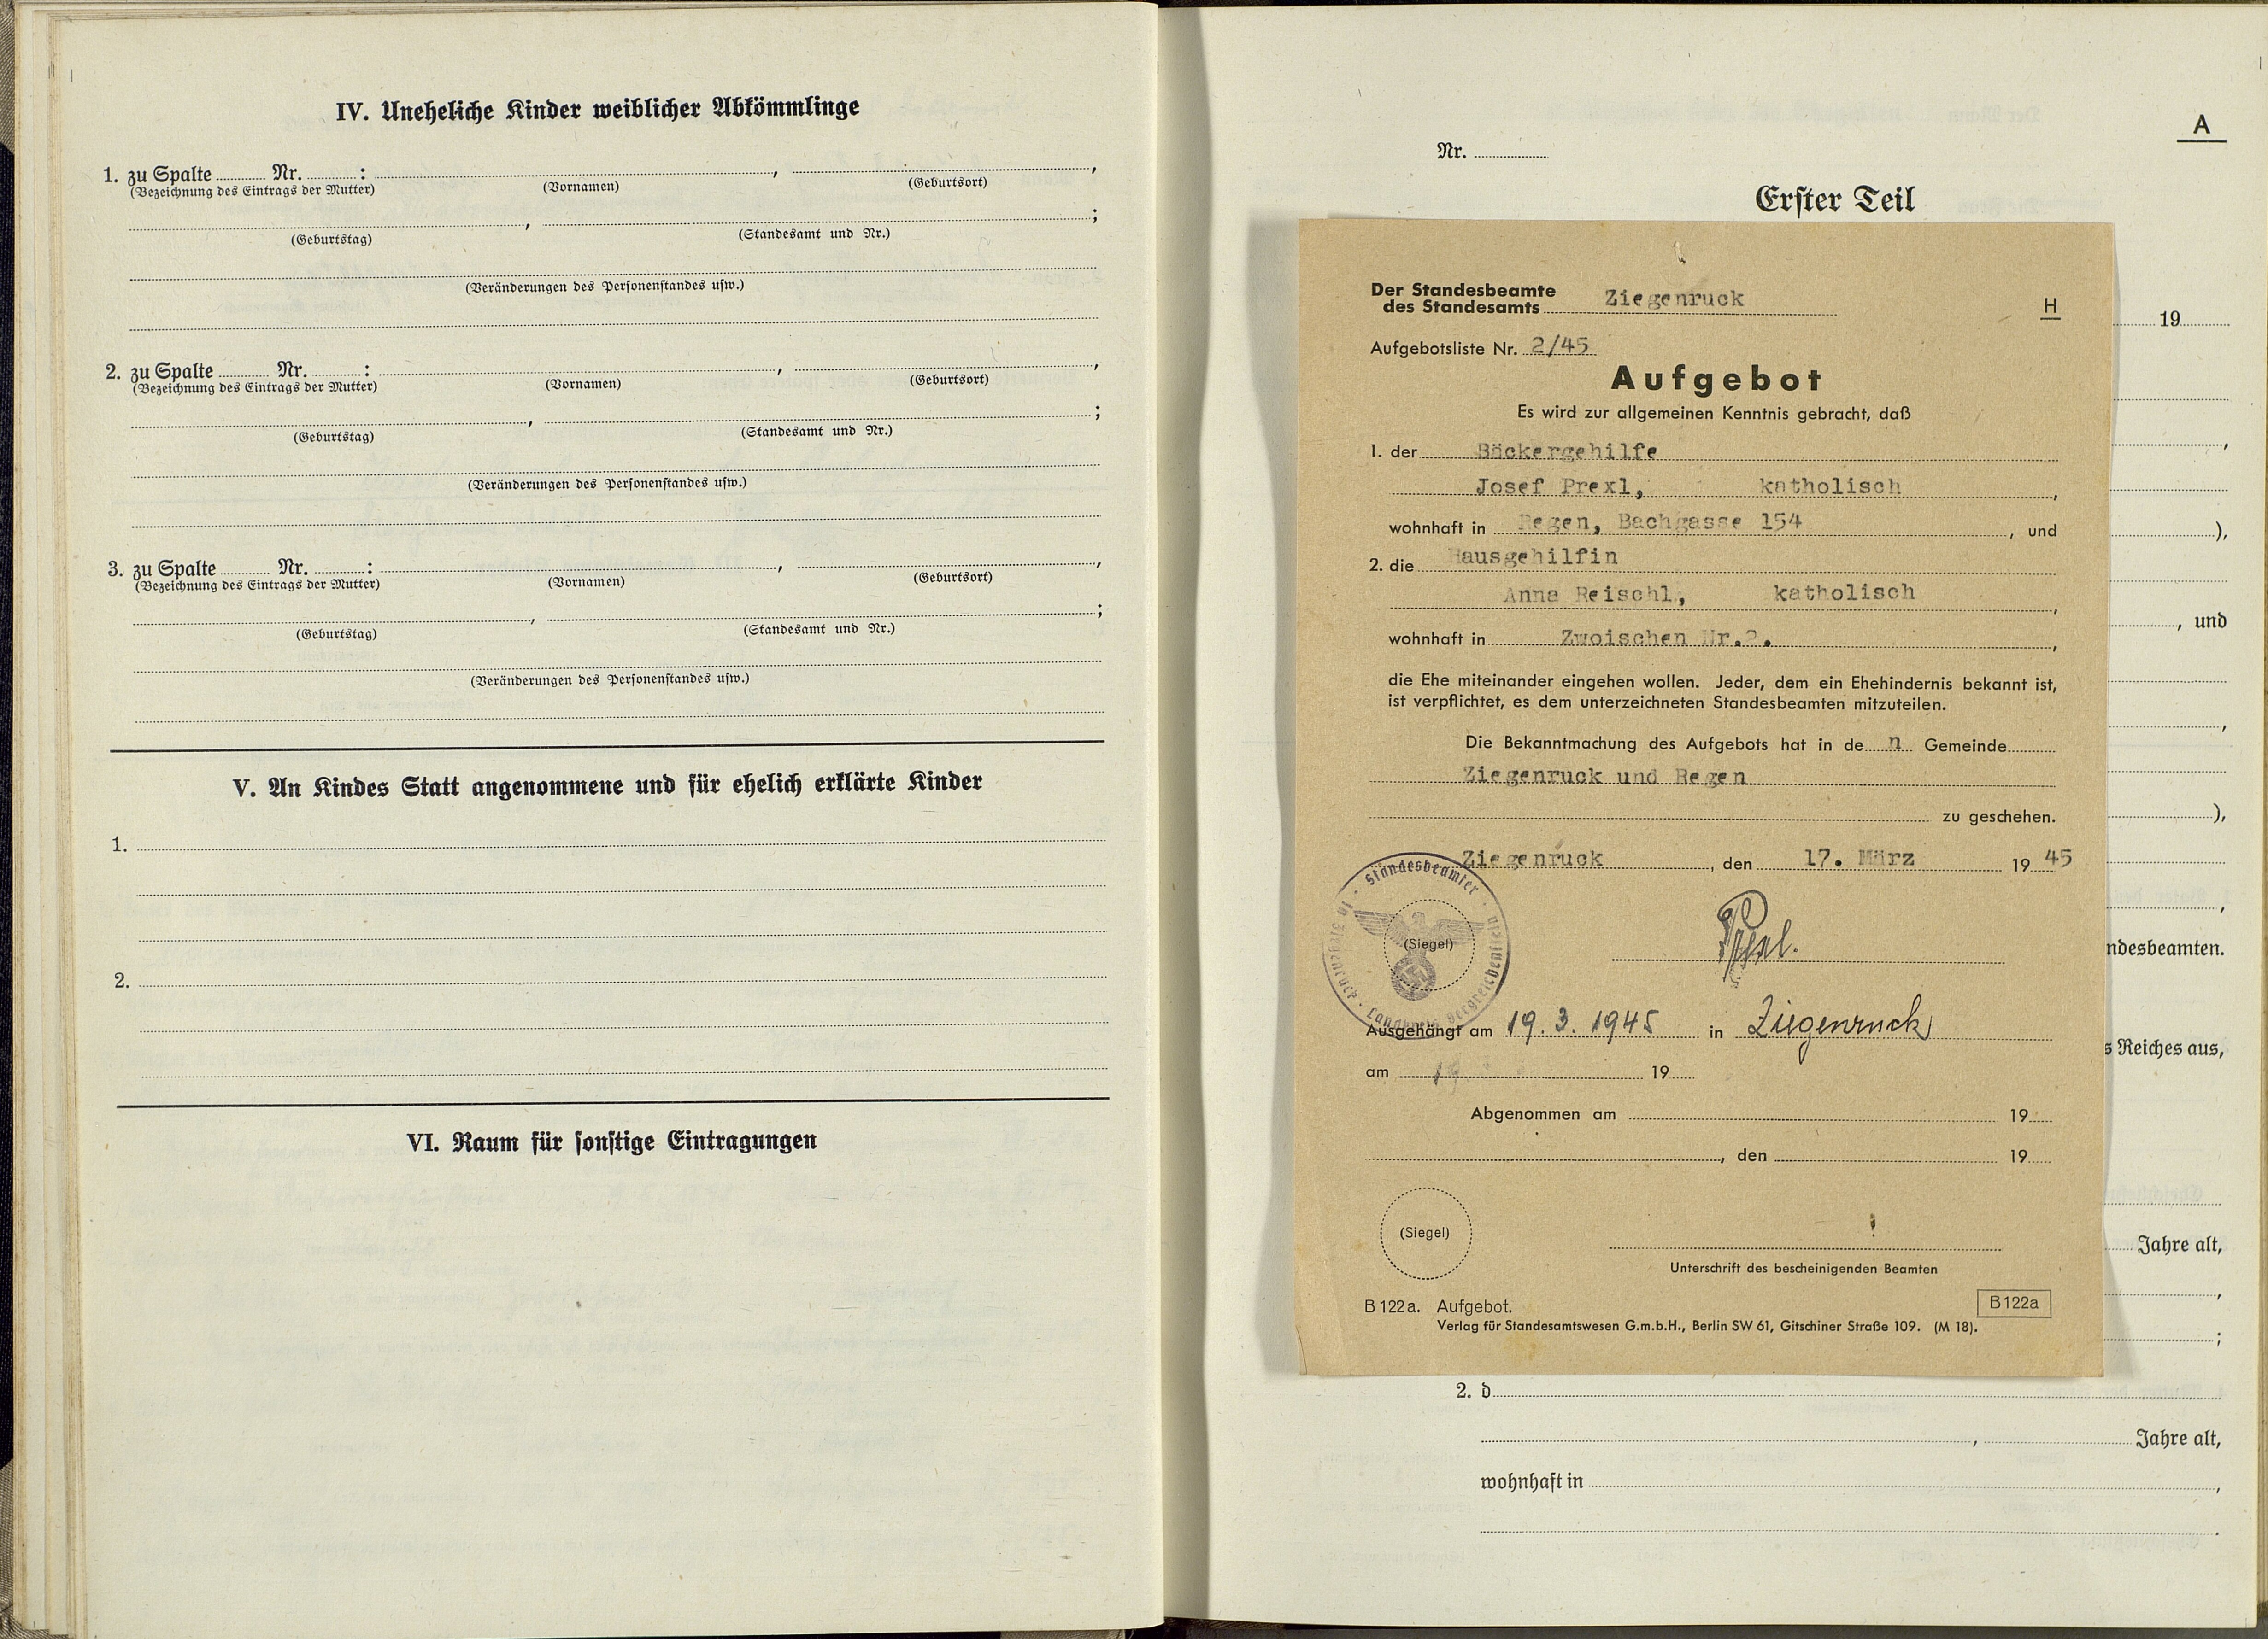 IV. Uneheliche Kinder weiblicher Abkömmlinge
1. zu Spalte ......... Nr. ......... : ........................, ........................,
(Bezeichnung des Eintrags der Mutter) (Vornamen) (Geburtsort)
........................, ........................;
(Geburtstag) (Standesamt und Nr.)
(Veränderungen des Personenstandes usw.)
2. zu Spalte ......... Nr. ......... : ........................, ........................,
(Bezeichnung des Eintrags der Mutter) (Vornamen) (Geburtsort)
........................, ........................;
(Geburtstag) (Standesamt und Nr.)
(Veränderungen des Personenstandes usw.)
3. zu Spalte ......... Nr. ......... : ........................, ........................,
(Bezeichnung des Eintrags der Mutter) (Vornamen) (Geburtsort)
........................, ........................;
(Geburtstag) (Standesamt und Nr.)
(Veränderungen des Personenstandes usw.)
V. An Kindes Statt angenommene und für ehelich erklärte Kinder
1.
2.
VI. Raum für sonstige Eintragungen
A
Nr.
Erster Teil
Der Standesbeamte
des Standesamts Ziegenruck
H
Aufgebotsliste Nr. 2/45
Aufgebot
Es wird zur allgemeinen Kenntnis gebracht, daß
1. der Bäckergehilfe
Josef Prexl, katholisch,
wohnhaft in Regen, Bachgasse 154, und
2. die Hausgehilfin
Anna Reischl, katholisch,
wohnhaft in Zwoischen Nr.2.,
die Ehe miteinander eingehen wollen. Jeder, dem ein Ehehindernis bekannt ist,
ist verpflichtet, es dem unterzeichneten Standesbeamten mitzuteilen.
Die Bekanntmachung des Aufgebots hat in de n Gemeinde
Ziegenruck und Regen
zu geschehen.
Ziegenruck, den 17. März 19 45
Standesbeamter in Ziegenruck · Landkreis Bergreichenstein
(Siegel)
Ausgehängt am 19. 3. 1945 in Ziegenruck
am 19
Abgenommen am 19
, den 19
(Siegel)
Unterschrift des bescheinigenden Beamten
B 122a. Aufgebot.
B 122a
Verlag für Standesamtswesen G.m.b.H., Berlin SW 61, Gitschiner Straße 109. (M 18).
19
,
),
, und
,
),
,
ndesbeamten.
s Reiches aus,
Jahre alt,
,
;
2. d
, Jahre alt,
wohnhaft in ,
.